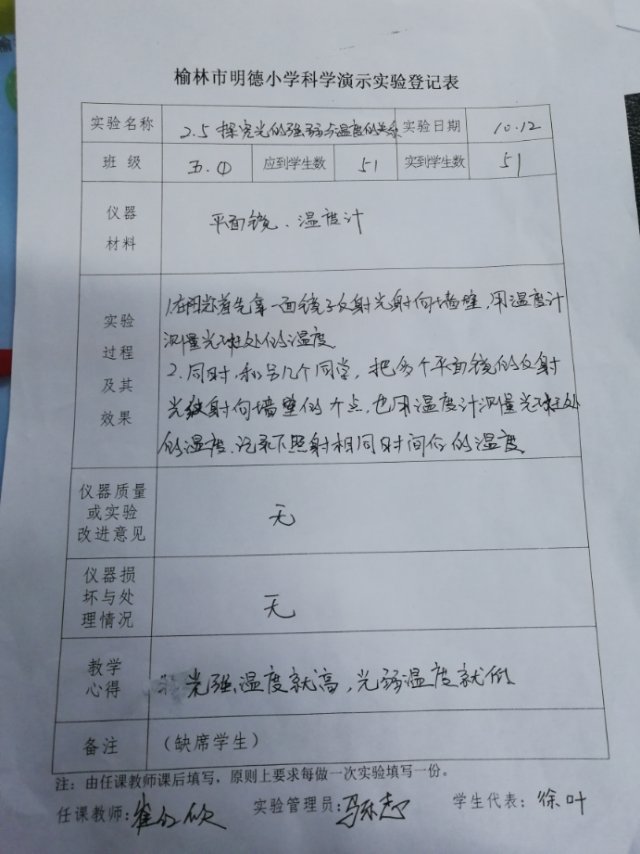 榆林市明德小学科学演示实验登记表
实验名称 2.5探究光的强弱与温度的关系 实验日期 10.12
班 级 五.① 应到学生数 51 实到学生数 51
仪器材料 平面镜、温度计
实验过程及其效果
1.在阳光首先拿一面镜子反射光射向墙壁,用温度计
测量光斑处的温度
2.同时,和另几个同学,把多个平面镜的反射
光线射向墙壁的个点,也用温度计测量光斑处
的温度.记录下照射相同时间后的温度
仪器质量或实验改进意见 无
仪器损坏与处理情况 无
教学心得 光强温度就高,光弱温度就低
备注 (缺席学生)
注:由任课教师课后填写,原则上要求每做一次实验填写一份。
任课教师: 实验管理员: 学生代表:徐叶